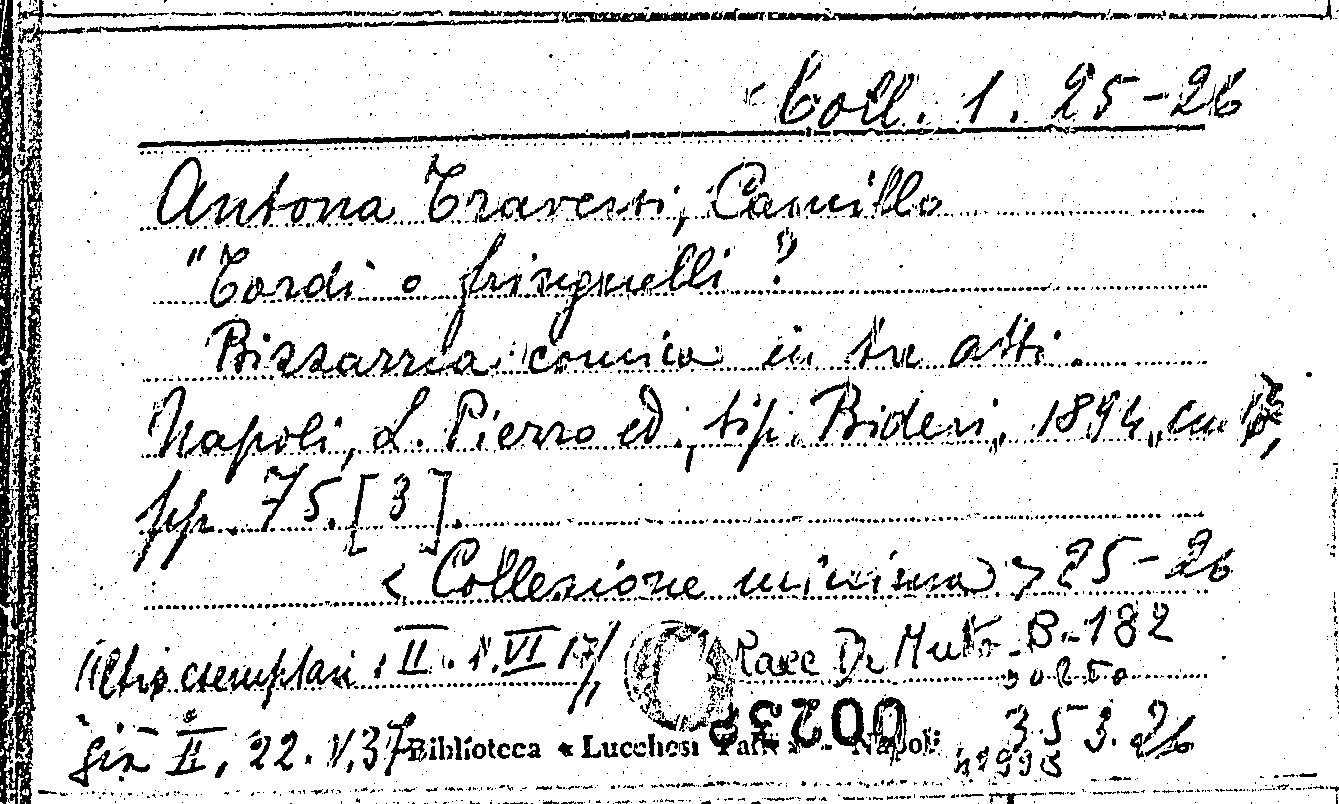 Coll. 1. 25-26
Antona Traversi, Camillo
"Tordi o fringuelli?
Bizzarria comica in tre atti.
Napoli, L. Pierro ed., tip. Bideri, 1894, cm
pp. 75. [3].
< Collezione minima > 25-26
Altro esemplare: II. 1. VI 17/
Racc Di B. 182
già II, 22. V, 37
00233
353. 26
Biblioteca « Lucchesi - Napoli